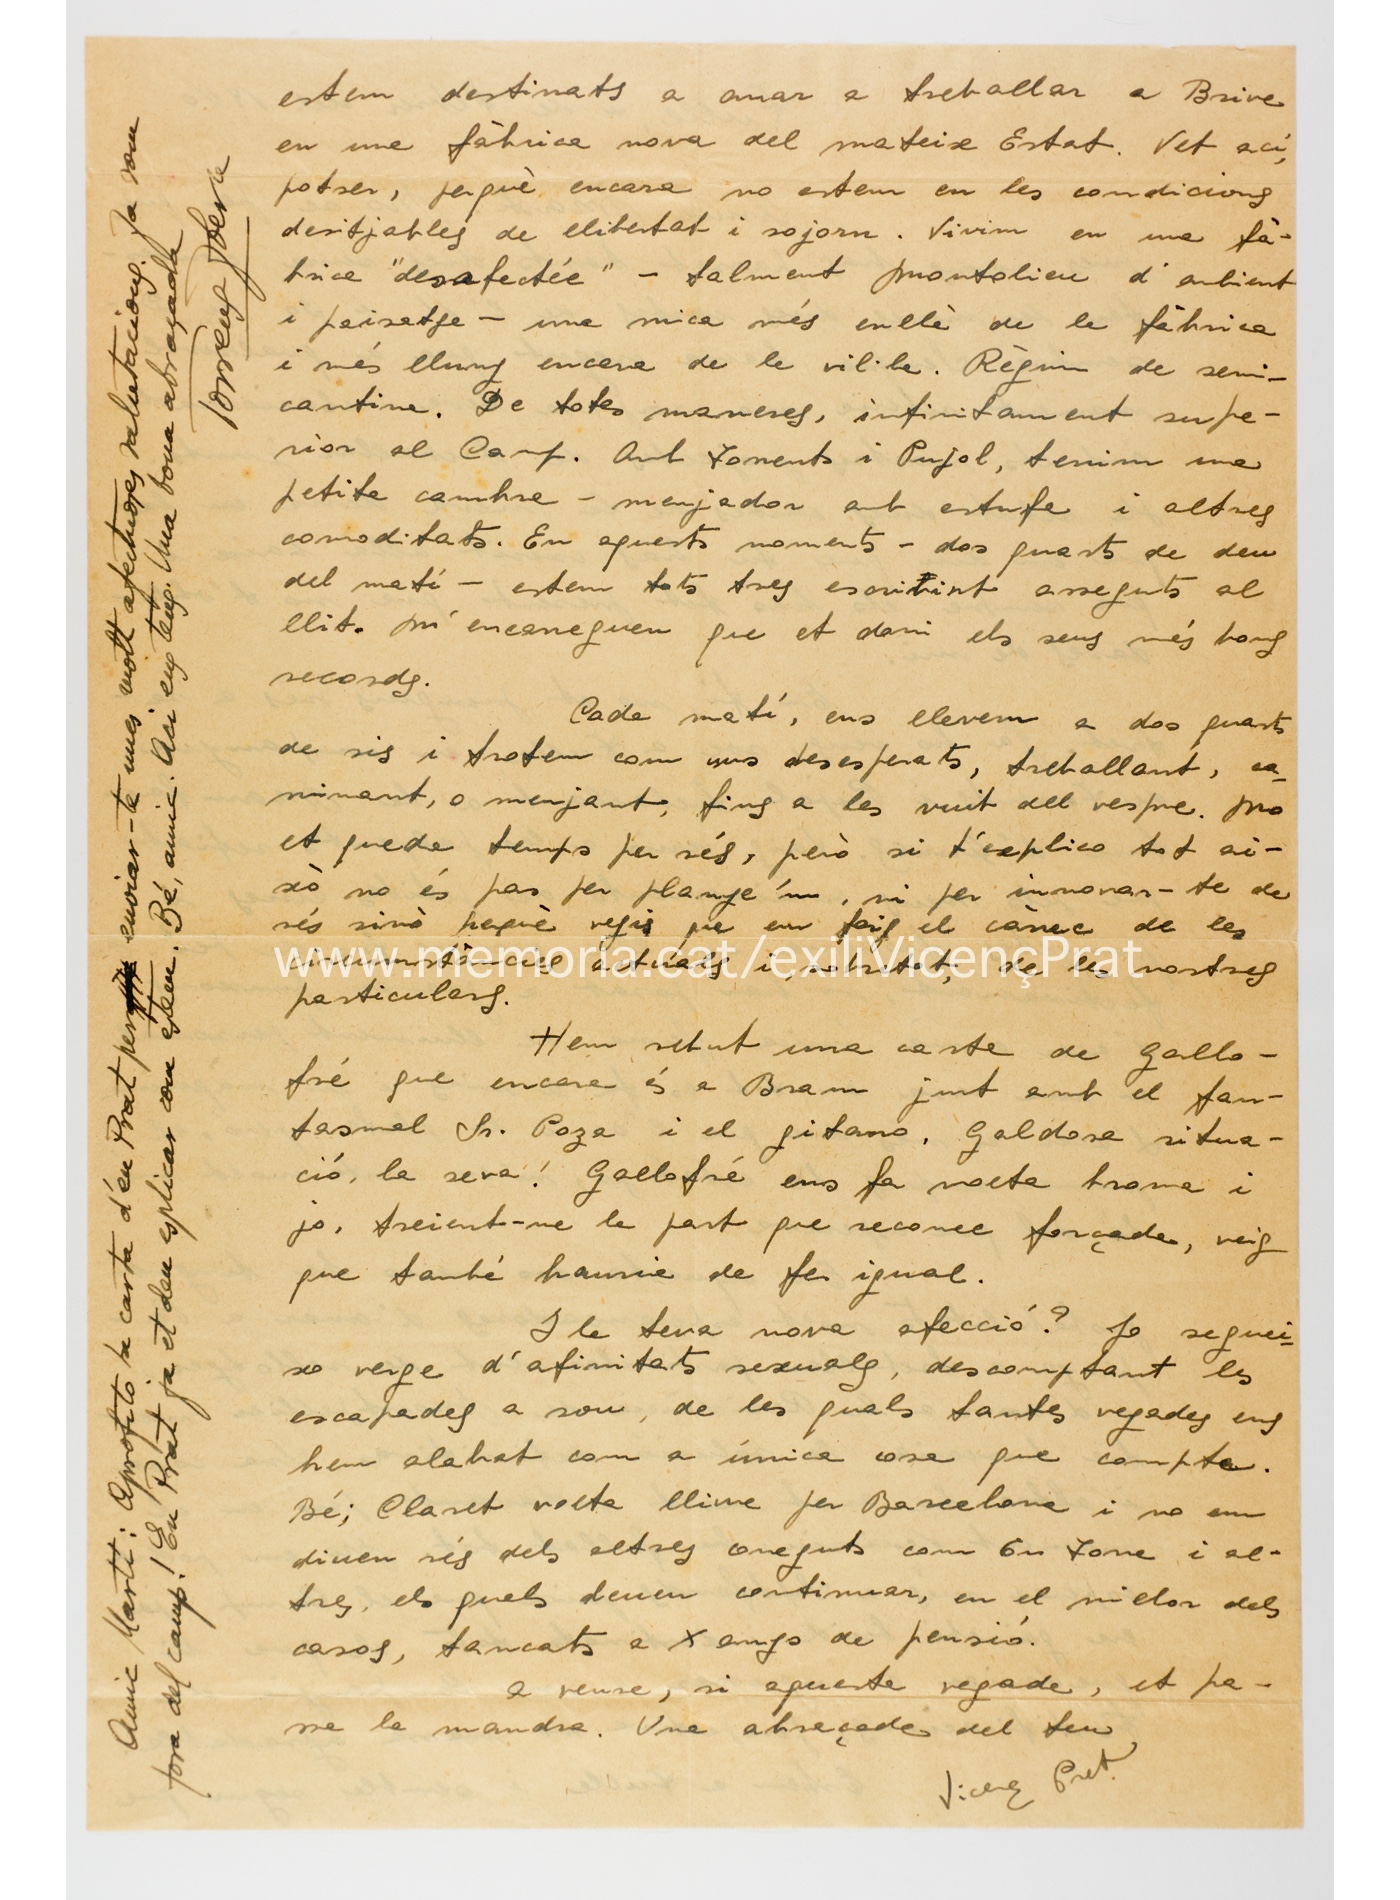 estem destinats a anar a treballar a Brive
en una fàbrica nova del mateix Estat. Vet ací,
potser, perquè encara no estem en les condicions
desitjables de llibertat i sojorn. Vivim en una fà-
brica "desafectée" - talment Montolieu d'ambient
i paisatge - una mica més enllà de la fàbrica
i més lluny encara de la vil·la. Règim de semi-
cantina. De totes maneres, infinitament supe-
rior al Camp. Amb Torrents i Pujol, tenim una
petita cambra - menjador amb estufa i altres
comoditats. En aquests moments - dos quarts de deu
del matí - estem tots tres escrivint asseguts al
llit. M'encarreguen que et doni els seus més bons
records.
Cada matí, ens llevem a dos quarts
de sis i trotem com uns desesperats, treballant, ca-
minant, o menjant, fins a les vuit del vespre. No
et queda temps per rés, però si t'explico tot ai-
xò no és pas per planye'm, ni per innovar-te de
rés sinó perquè vegis que em faig el càrrec de les
circumstàncies actuals i, sobretot, de les nostres
particulars.
Hem rebut una carta de Gallo-
fré que encara és a Bram junt amb el fan-
tasmal Sr. Poza i el gitano. Galdosa situa-
ció, la seva! Gallofré ens fa molta broma i
jo, treient-ne la part que reconec forçada, veig
que també hauria de fer igual.
I la teva nova afecció? Jo seguei-
xo verge d'afinitats sexuals, descomptant les
escapades a sou, de les quals tantes vegades ens
hem alabat com a única cosa que compta.
Bé; Claret volta lliure per Barcelona i no em
diuen rés dels altres coneguts com En Tone i al-
tres, els quals deuen continuar, en el millor dels
casos, tancats a X anys de pensió.
A veure, si aquesta vegada, et pa-
ssa la mandra. Una abraçada del teu
Vicenç Prat.
Amic Martí: Aprofito la carta d'en Prat per enviar-te unes molt afectuoses salutacions. Ja som
fora del camp! En Prat ja et deu esplicar com estem. Bé, amic. Aci ens tens. Una bona abraçada
Torrens Joera
www.memoria.cat/exiliVicençPrat